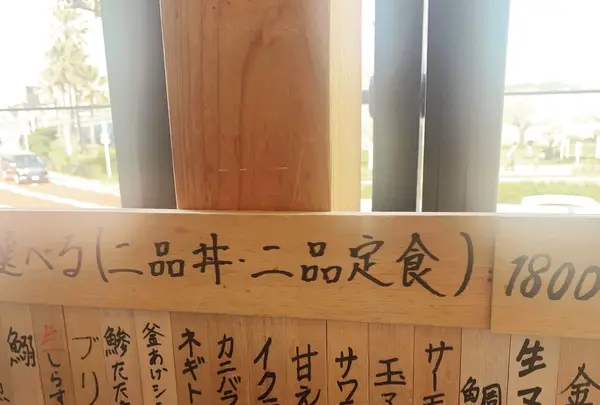 選べる(二品丼・二品定食)
1800
鰯
生しらす
ブリ
鯵たたき
釜あげシ
ネギト
カニバラ
イクラ
甘え
サワ
玉
サーモ
鯛
生
金